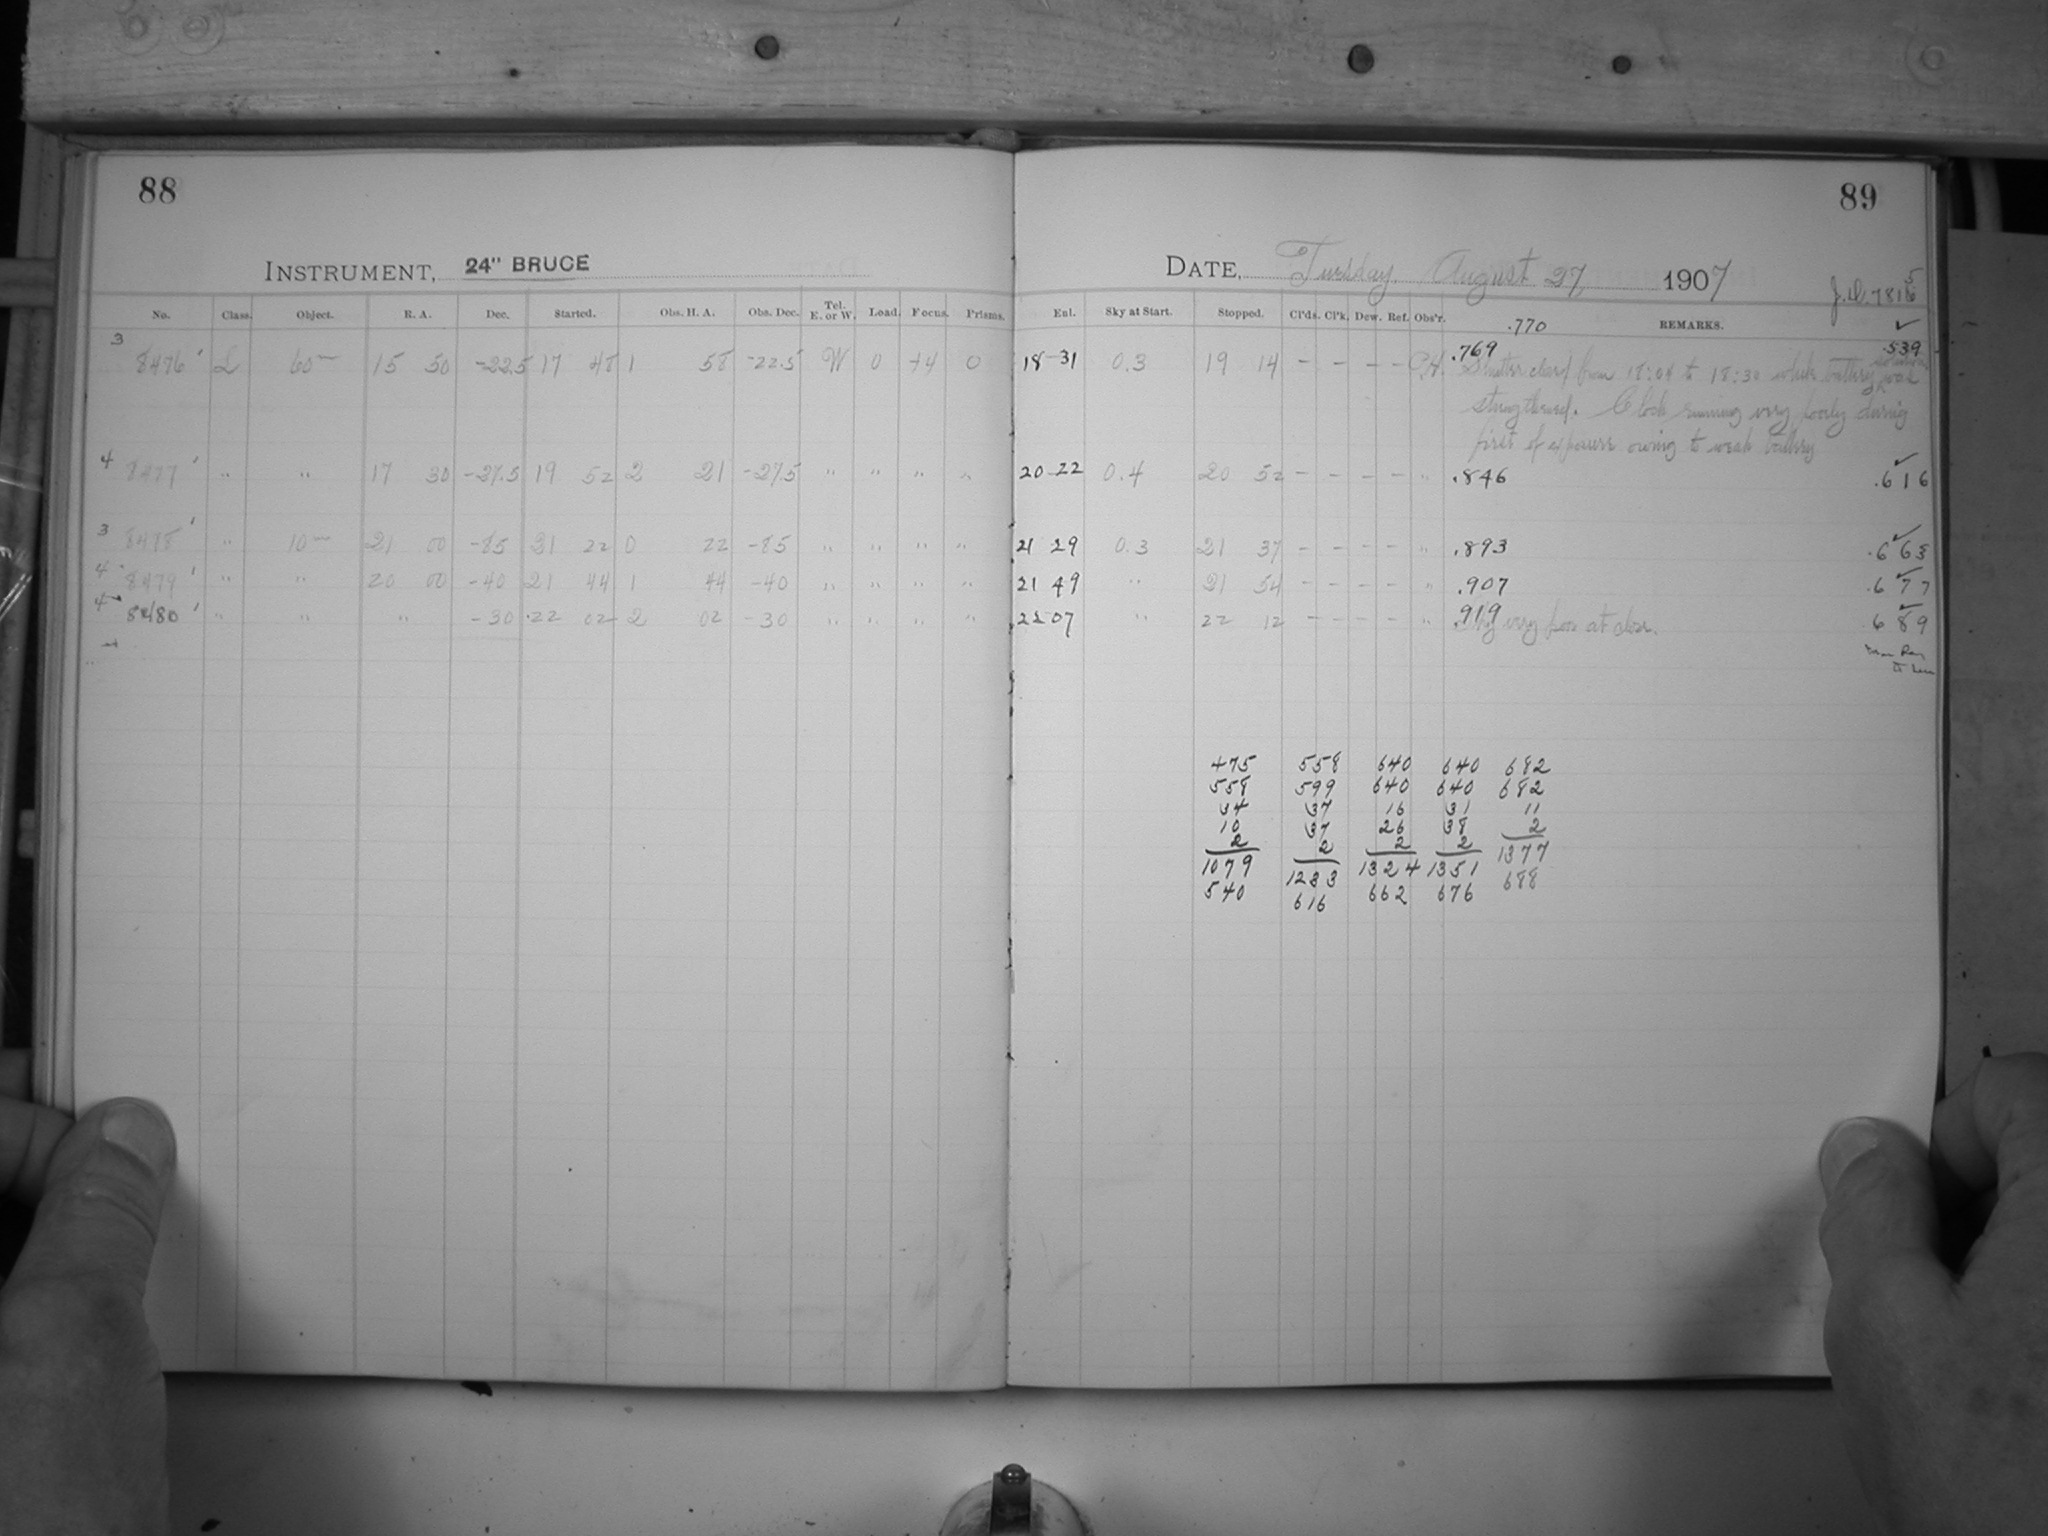 88
INSTRUMENT, 24" BRUCE
No. Class. Object. R. A. Dec. Started. Obs. H. A. Obs. Dec. Tel. E. or W. Load. Focus. Prisms.
3 8476 L 60m 15 50 -22.5 17 48 1 58 -22.5 W 0 +4 0
4 8477 " " 17 30 -27.5 19 52 2 21 -27.5 " " " "
3 8478 " 10m 21 00 -85 21 22 0 22 -85 " " " "
4 8479 " " 20 00 -40 21 44 1 44 -40 " " " "
4 8480 " " " -30 22 02 2 02 -30 " " " "
89
DATE, Tuesday August 27 1907
J.D. 781 5
Enl. Sky at Start. Stopped. Cl'ds. Cl'k. Dew. Ref. Obs'r. .770 REMARKS.
18 31 0.3 19 14 - - - - .769 .539
Shutter closed from 18:04 to 18:30 while battery was
strengthened. Clock running very poorly during
first of exposure owing to weak battery
20 22 0.4 20 52 - - - - " .846 .616
21 29 0.3 21 37 - - - - " .893 .663
21 49 " 21 54 - - - - " .907 .677
22 07 " 22 12 - - - - " .919 Sky very poor at close. .689
475 558 640 640 682
558 599 640 640 682
34 37 16 31 11
10 37 26 38 2
2 2 2 2 1377
1079 1233 1324 1351 688
540 616 662 676